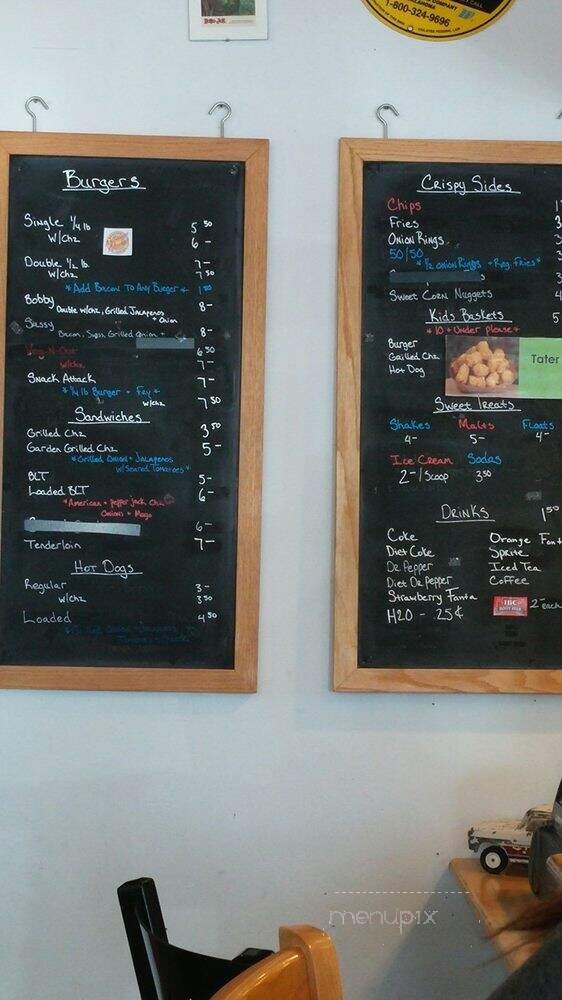 COMPANY
OKLAHOMA
1-800-324-9696
Burgers
Single 1/4 lb 5 50
w/chz 6 -
Double 1/2 lb. 7 -
w/chz 7 50
* Add Bacon To Any Burger * 1 50
Bobby Double w/chz, Grilled Jalapenos + Onion 8 -
Sassy Bacon, Swiss, Grilled Onion + 8 -
6 50
w/chz 7 -
Snack Attack 7 -
* 1/4 lb Burger + Fry *
w/chz 7 50
Sandwiches
Grilled Chz 3 50
Garden Grilled Chz 5 -
* Grilled Onion + Jalapenos
w/Seared Tomatoes *
BLT 5 -
Loaded BLT 6 -
* American + Pepper Jack Chz
Onions + Mayo
6 -
Tenderloin 7 -
Hot Dogs
Regular 3 -
w/chz 3 50
Loaded 4 50
Crispy Sides
Chips
Fries
Onion Rings
50/50
* 1/2 Onion Rings + Reg. Fries *
Sweet Corn Nuggets 4
Kids Baskets 5
* 10 + Under Please *
Burger
Grilled Chz
Hot Dog
Tater
Sweet Treats
Shakes Malts Floats
4 - 5 - 4 -
Ice Cream Sodas
2 - / Scoop 3 50
Drinks 1 50
Coke Orange Fant
Diet Coke Sprite
Dr. Pepper Iced Tea
Diet Dr. Pepper Coffee
Strawberry Fanta
H2O - .25¢
IBC
ROOT BEER
2 - each
menupix